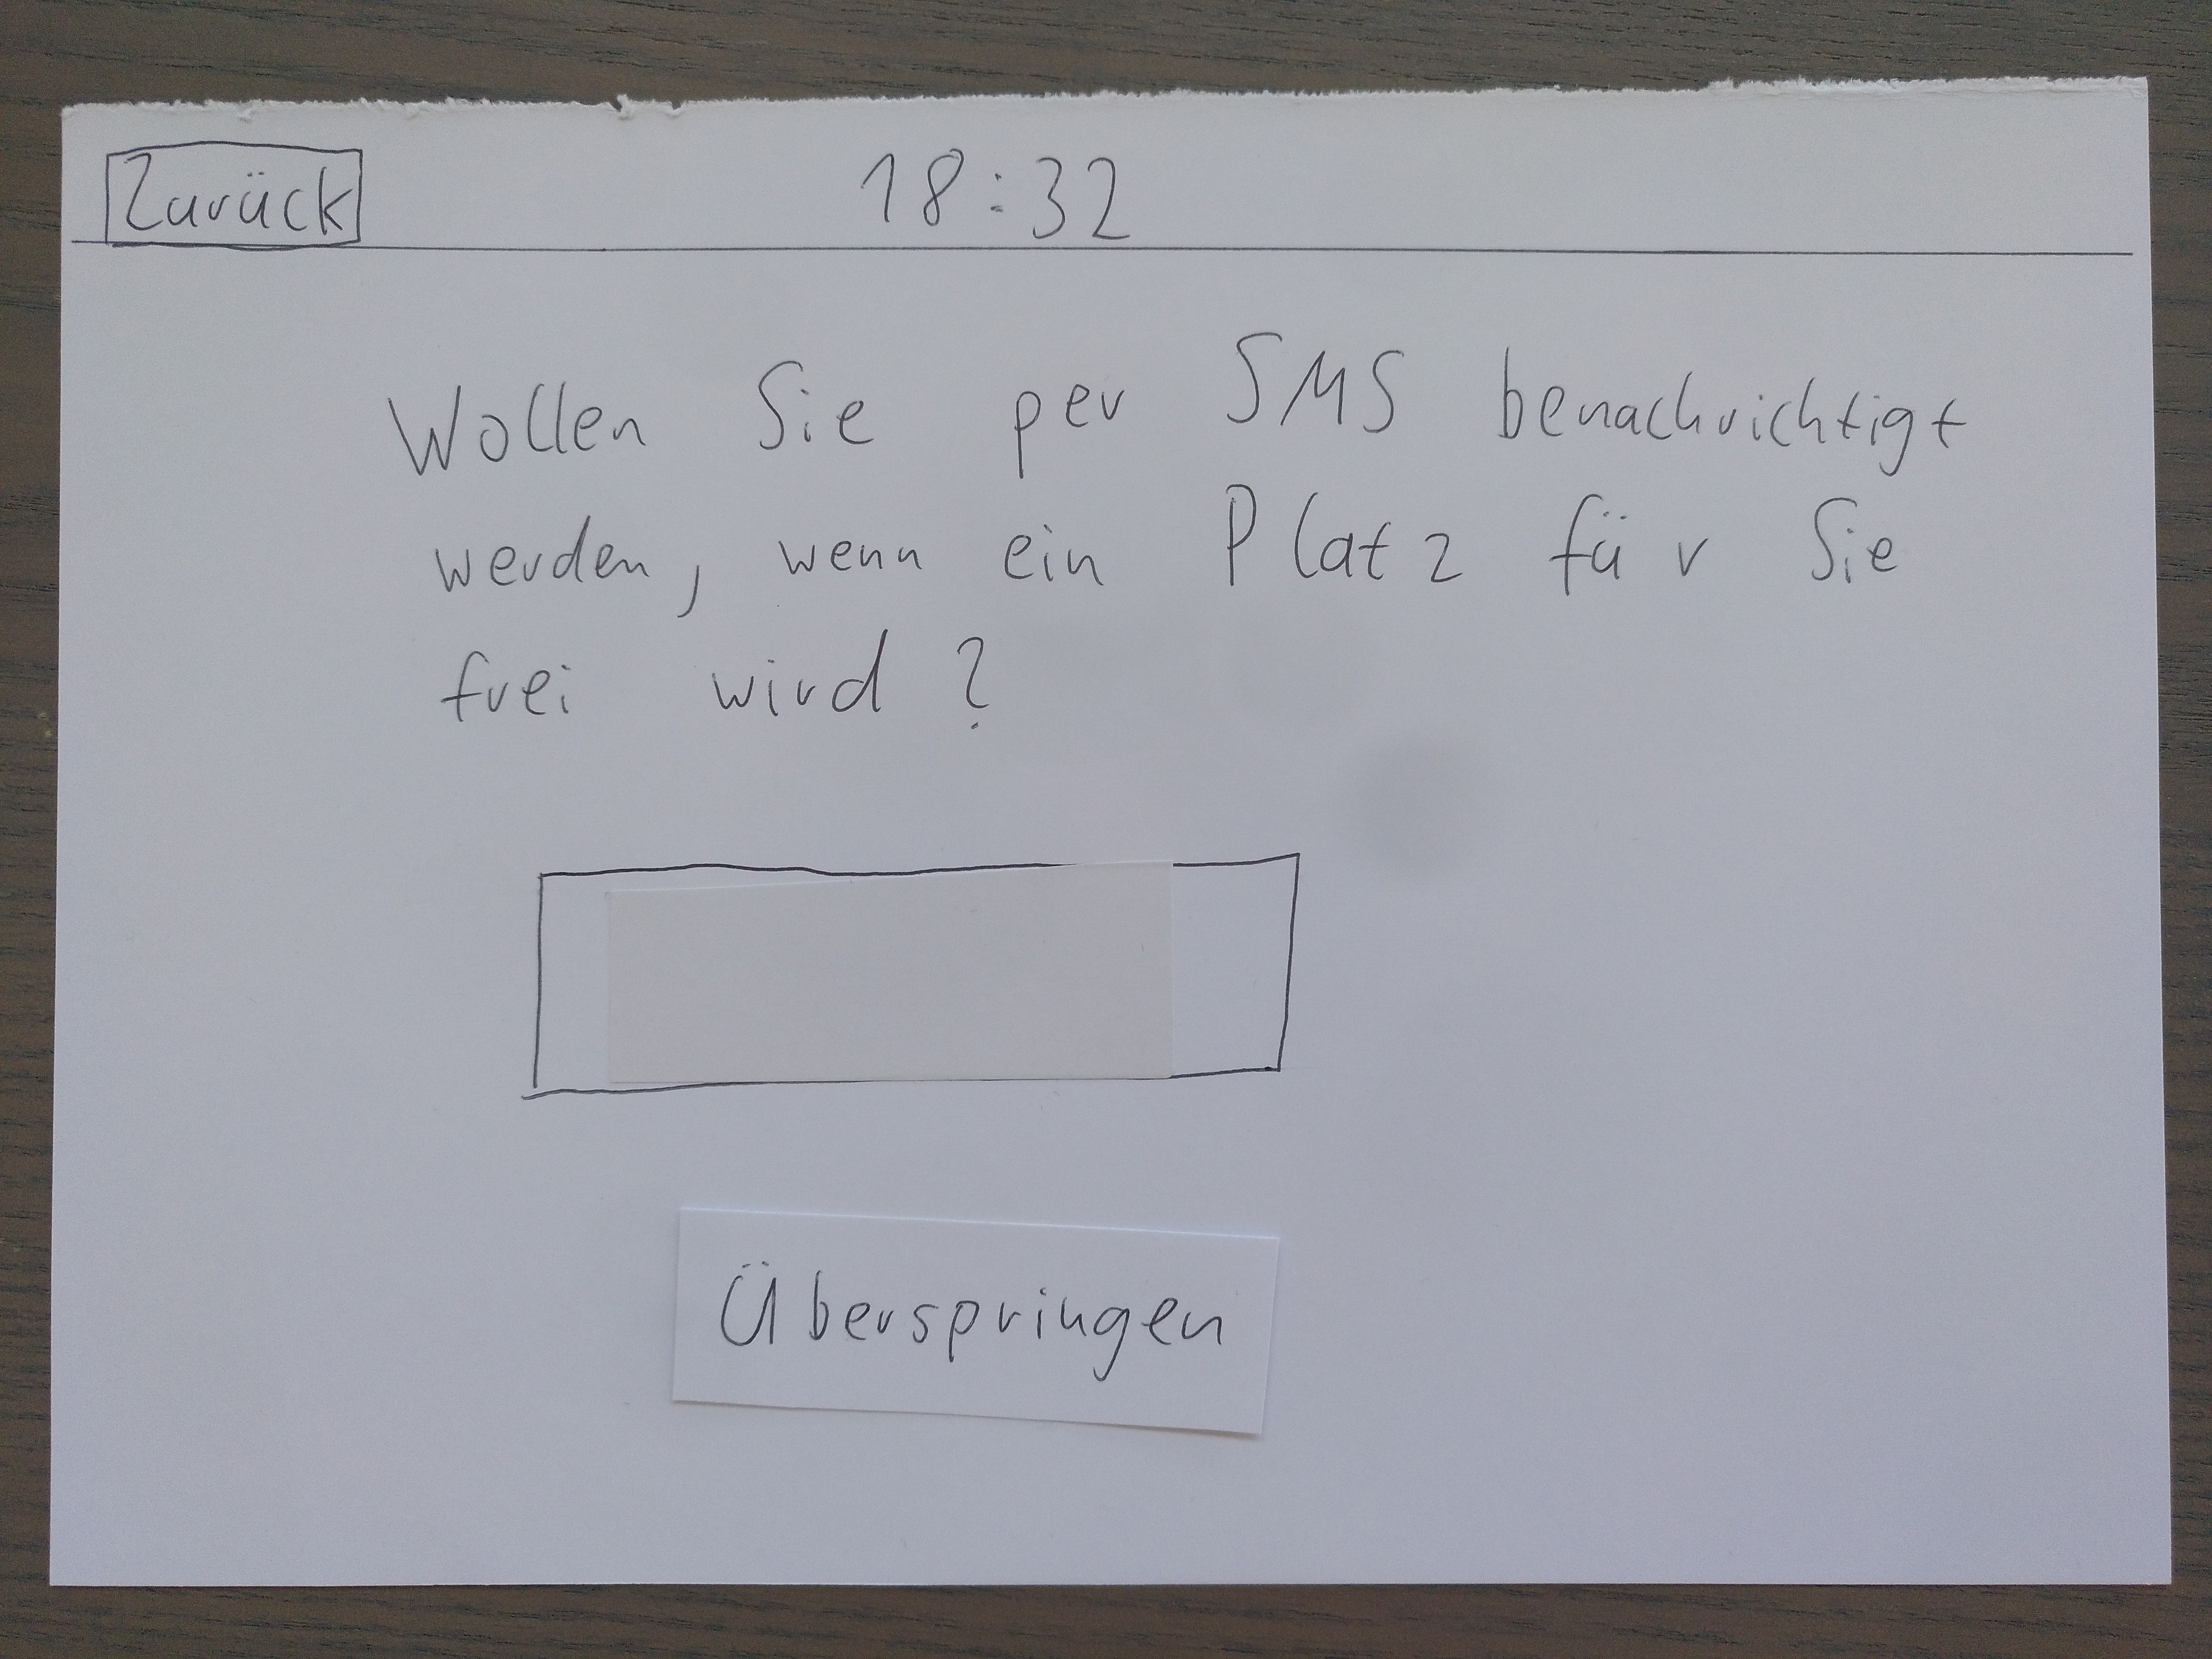 Zurück 18:32
Wollen Sie per SMS benachrichtigt
werden, wenn ein Platz für Sie
frei wird?
Überspringen